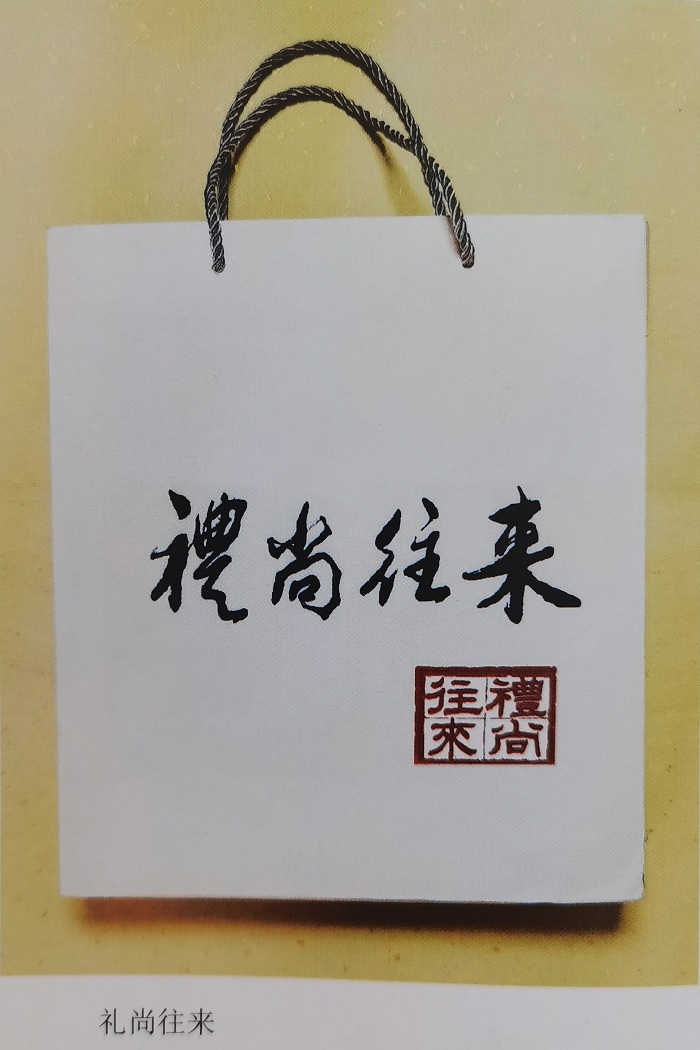 禮尚往来
禮尚
往來
礼尚往来